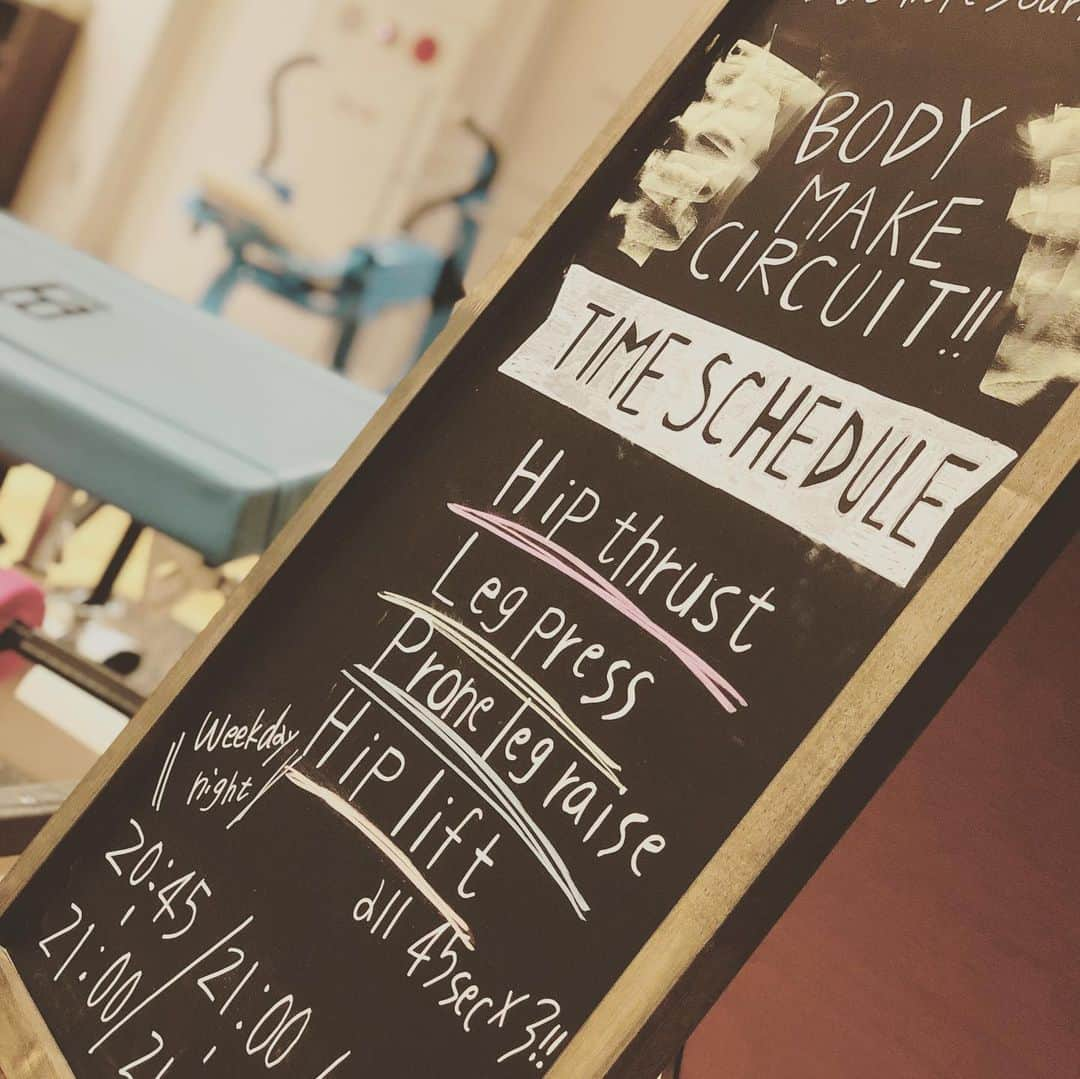 BODY
MAKE
CIRCUIT!!
TIME SCHEDULE
Hip thrust
Leg press
Prone leg raise
Hip lift
Weekday
night
all 45sec×3!!
20:45/21:00/
21:00/21: